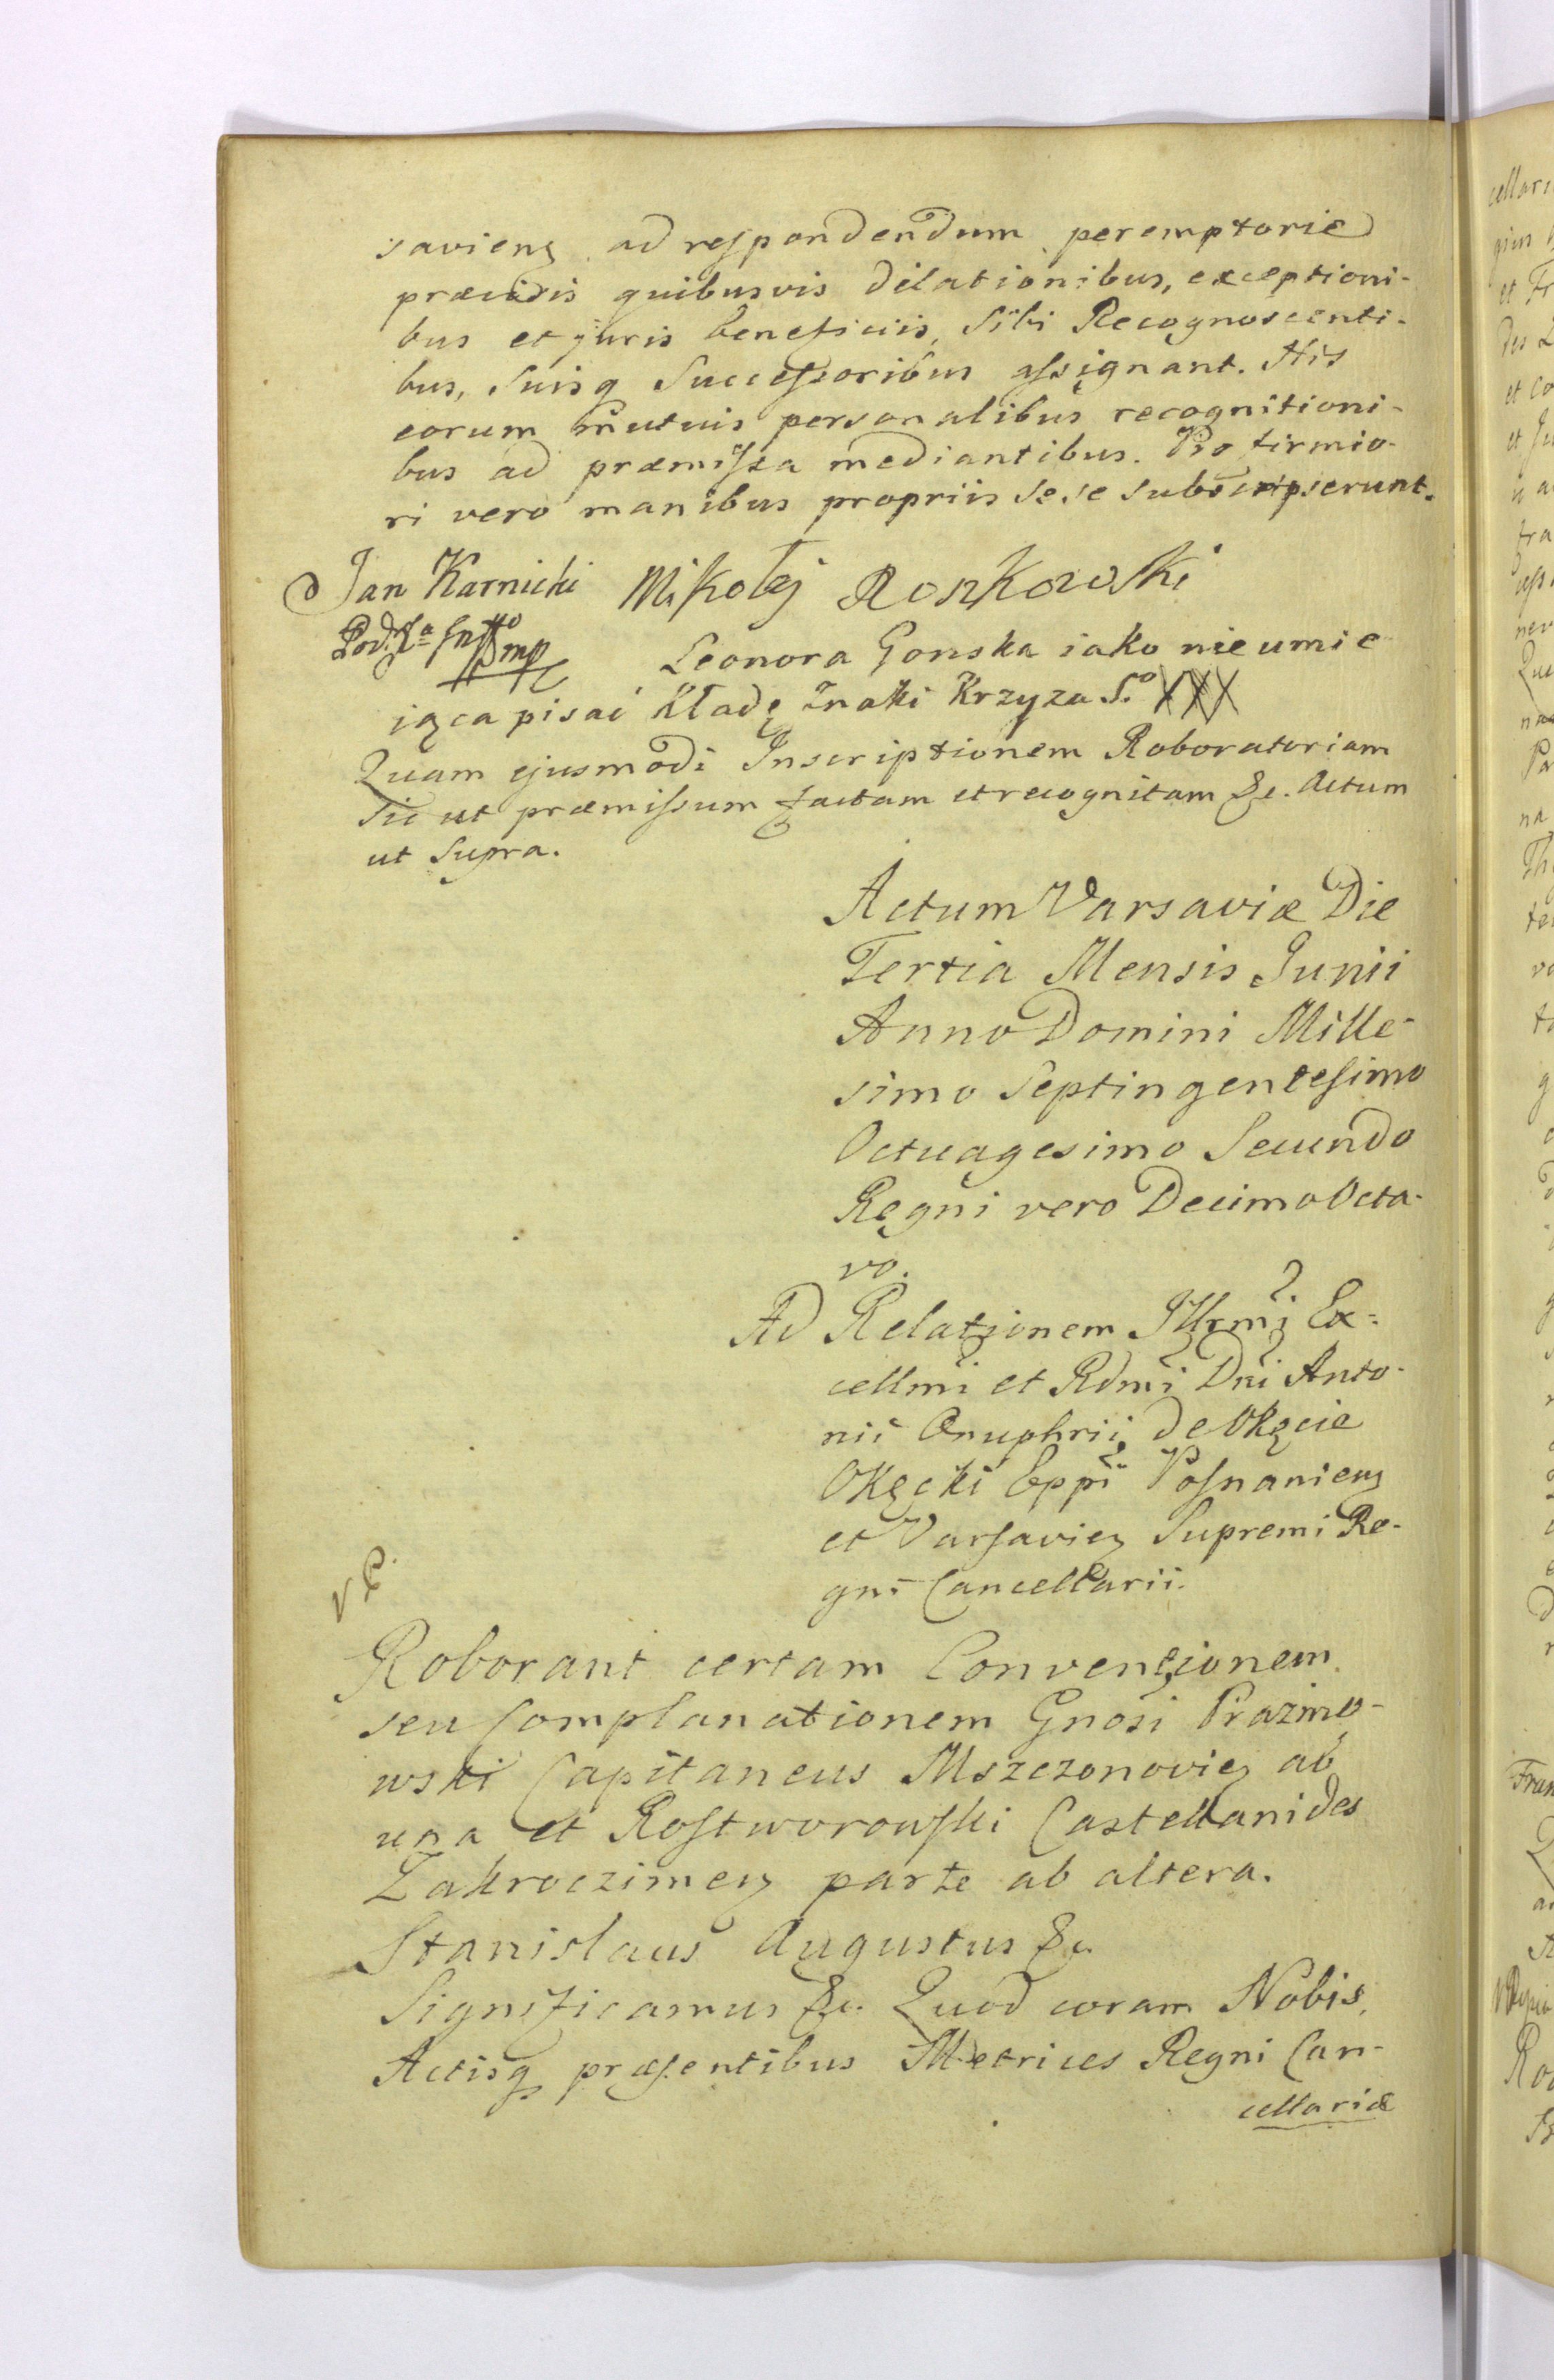 saviens ad respondendum peremptorie
præcisis quibusvis dilationibus, exceptioni-
bus et juris beneficiis, Sibi Recognoscenti-
bus, Suisq Successoribus assignant. His
eorum mutuis personalibus recognitioni-
bus ad præmissa mediantibus. Pro firmio-
ri vero manibus propriis Se se subscripserunt.
Jan Karnicki Mikołej Ronkowski
Leonora Gonska iako nie umie
iąca pisać Kładę Znaki Krzyza S.º XXX
Quam ejusmodi Inscriptionem Roboratoriam
Sic ut præmissum factam et recognitam &c. Actum
ut Supra.
Actum Varsaviæ Die
Tertia Mensis Junii
Anno Domini Mille-
simo Septingentesimo
Octuagesimo Secundo
Regni vero Decimo Octa-
vo.
Ad Relationem Illrmi Ex-
cellmi et Rdmi Dni Anto-
nii Onuphrii de Okęcie
Okęcki Eppi Posnaniens
et Varsavien Supremi Re-
gni Cancellarii.
Roborant certam Conventionem
seu Complanationem Gnosi Prazmo-
wski Capitaneus Mszczonovien ab
una et Rostworowski Castellanides
Zakroczimen parte ab altera.
Stanislaus Augustus &c.
Significamus &c. Quod coram Nobis,
Actisq præsentibus Metrices Regni Can-
cellariæ